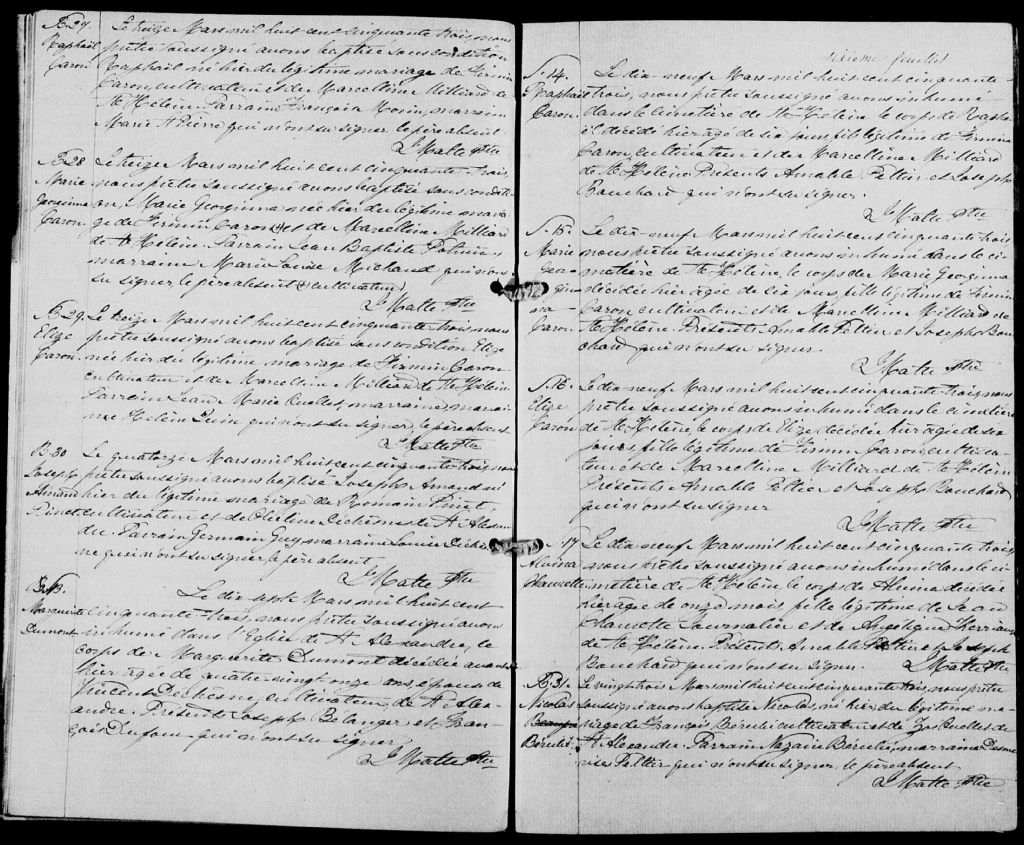 B.27
Raphaël
Caron
Le treize Mars mil huit cent cinquante trois nous
prêtre soussigné avons baptisé sous condition
Raphaël né hier du légitime mariage de Firmin
Caron, cultivateur et de Marcelline Milliard de
Ste Hélène. Parrain François Morin, marraine
Marie St Pierre qui n'ont su signer, le père absent.
J. Matte Ptre
B.28
Marie
Georginna
Caron.
Le treize Mars mil huit cent cinquante-trois,
nous prêtre soussigné avons baptisé sous conditi-
on, Marie Georginna née hier du légitime maria-
ge de Firmin Caron (+) et de Marcelline Milliard
de Ste Hélène. Parrain Jean Baptiste
marraine Marie Louise Michaud qui n'ont
su signer, le père absent (+ cultivateur)
J. Matte Ptre
B.29.
Elize
Caron.
Le treize Mars mil huit cent cinquante trois nous
prêtre soussigné avons baptisé sous condition Elize
née hier du légitime mariage de Firmin Caron
cultivateur et de Marcelline Milliard de Ste Hélène
Parrain Jean Marie Ouellet, marraine, marrai-
ne Hélène qui n'ont su signer, le père absent
J. Matte Ptre
B.30
Joseph
Amand
Pinet.
Le quatorze Mars mil huit cent cinquante-trois nous
prêtre soussigné avons baptisé Joseph Amand né
hier du légitime mariage de Romain Pinet,
cultivateur et de de St Alexan-
dre Parrain Germain Guy, marraine Louise
ne qui n'ont su signer, le père absent
J. Matte Ptre
S.13.
Marguerite
Dumont.
Le dix sept Mars mil huit cent
cinquante-trois, nous prêtre soussigné avons
inhumé dans l'Eglise de St Alexandre, le
corps de Marguerite Dumont décédée avant
hier agée de quatre vingt onze ans, épouse de
Vincent cultivateur, de St Alex-
andre. Présents Joseph Belanger et Fran-
çois Dufour qui n'ont su signer
J. Matte Ptre
sixième feuillet
S.14.
Raphaël
Caron.
Le dix-neuf Mars mil huit cent cinquante-
trois, nous prêtre soussigné avons inhumé
dans le cimetière de Ste Hélène le corps de Rapha-
ël décédé hier agé de six jours fils légitime de Firmin
Caron, cultivateur et de Marcelline Milliard
de Ste Hélène. Présents Amable Peltier et Joseph
Bouchard qui n'ont su signer.
J. Matte Ptre
S.15.
Marie
Geor-
gin-
na-
Caron.
Le dix-neuf Mars mil huit cent cinquante trois
nous prêtre soussigné avons inhumé dans le ci-
metière de Ste Hélène, le corps de Marie Georginna
décédée hier agée de six jours, fille légitime de Firmin
Caron, cultivateur et de Marcelline Milliard de
Ste Hélène. Présents Amable Peltier et Joseph Bou-
chard qui n'ont su signer.
J. Matte Ptre
S.16.
Elize
Caron
Le dix-neuf Mars mil huit cent cinquante trois nous
prêtre soussigné avons inhumé dans le cimetière
de Ste Hélène le corps de Elize décédée hier agée de six
jours, fille légitime de Firmin Caron, cultiva-
teur et de Marcelline Milliard de Ste Hélène
Présents Amable Peltier et Joseph Bouchard
qui n'ont su signer
J. Matte Ptre
S.17
Alvina
Chaurette
Le dix-neuf Mars mil huit cent cinquante trois,
nous prêtre soussigné avons inhumé dans le ci-
metière de Ste Hélène le corps de Alvina décédée
hier agée de onze mois fille légitime de Jean
Chaurette Journalier et de Angélique
de Ste Hélène. Présents Amable Peltier et Joseph
Bouchard qui n'ont su signer.
J. Matte Ptre
B.31.
Nicolas
Bérubé
Le vingt trois Mars mil huit cent cinquante trois, nous prêtre
soussigné avons baptisé Nicolas né hier du légitime ma-
riage de François Bérubé cultivateur et de Zoé Ouellet de
St Alexandre. Parrain Nazaire Bérubé, marraine Desne-
Peltier qui n'ont su signer, le père absent
J. Matte Ptre